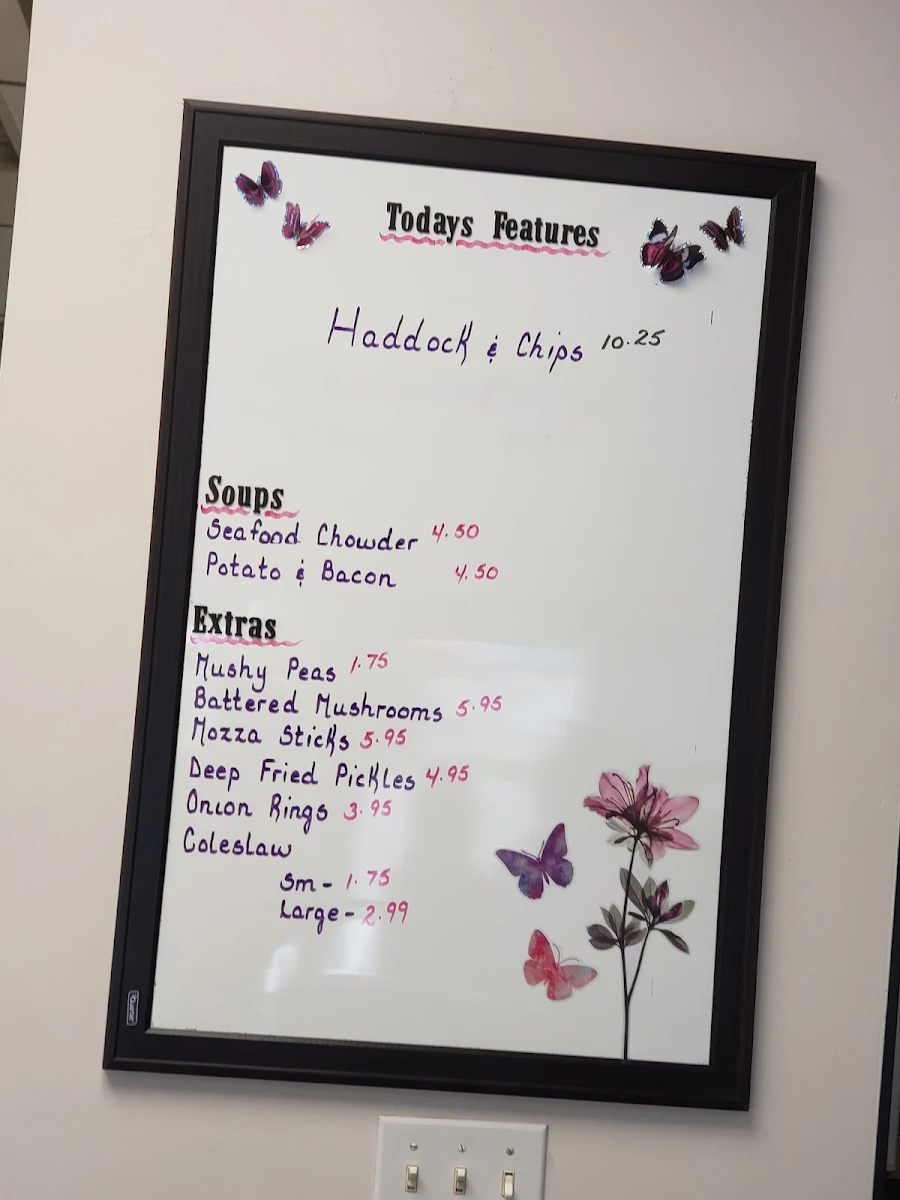 Todays Features
Haddock & Chips 10.25
Soups
Seafood Chowder 4.50
Potato & Bacon 4.50
Extras
Mushy Peas 1.75
Battered Mushrooms 5.95
Mozza Sticks 5.95
Deep Fried Pickles 4.95
Onion Rings 3.95
Coleslaw
Sm - 1.75
Large - 2.99
Quartet